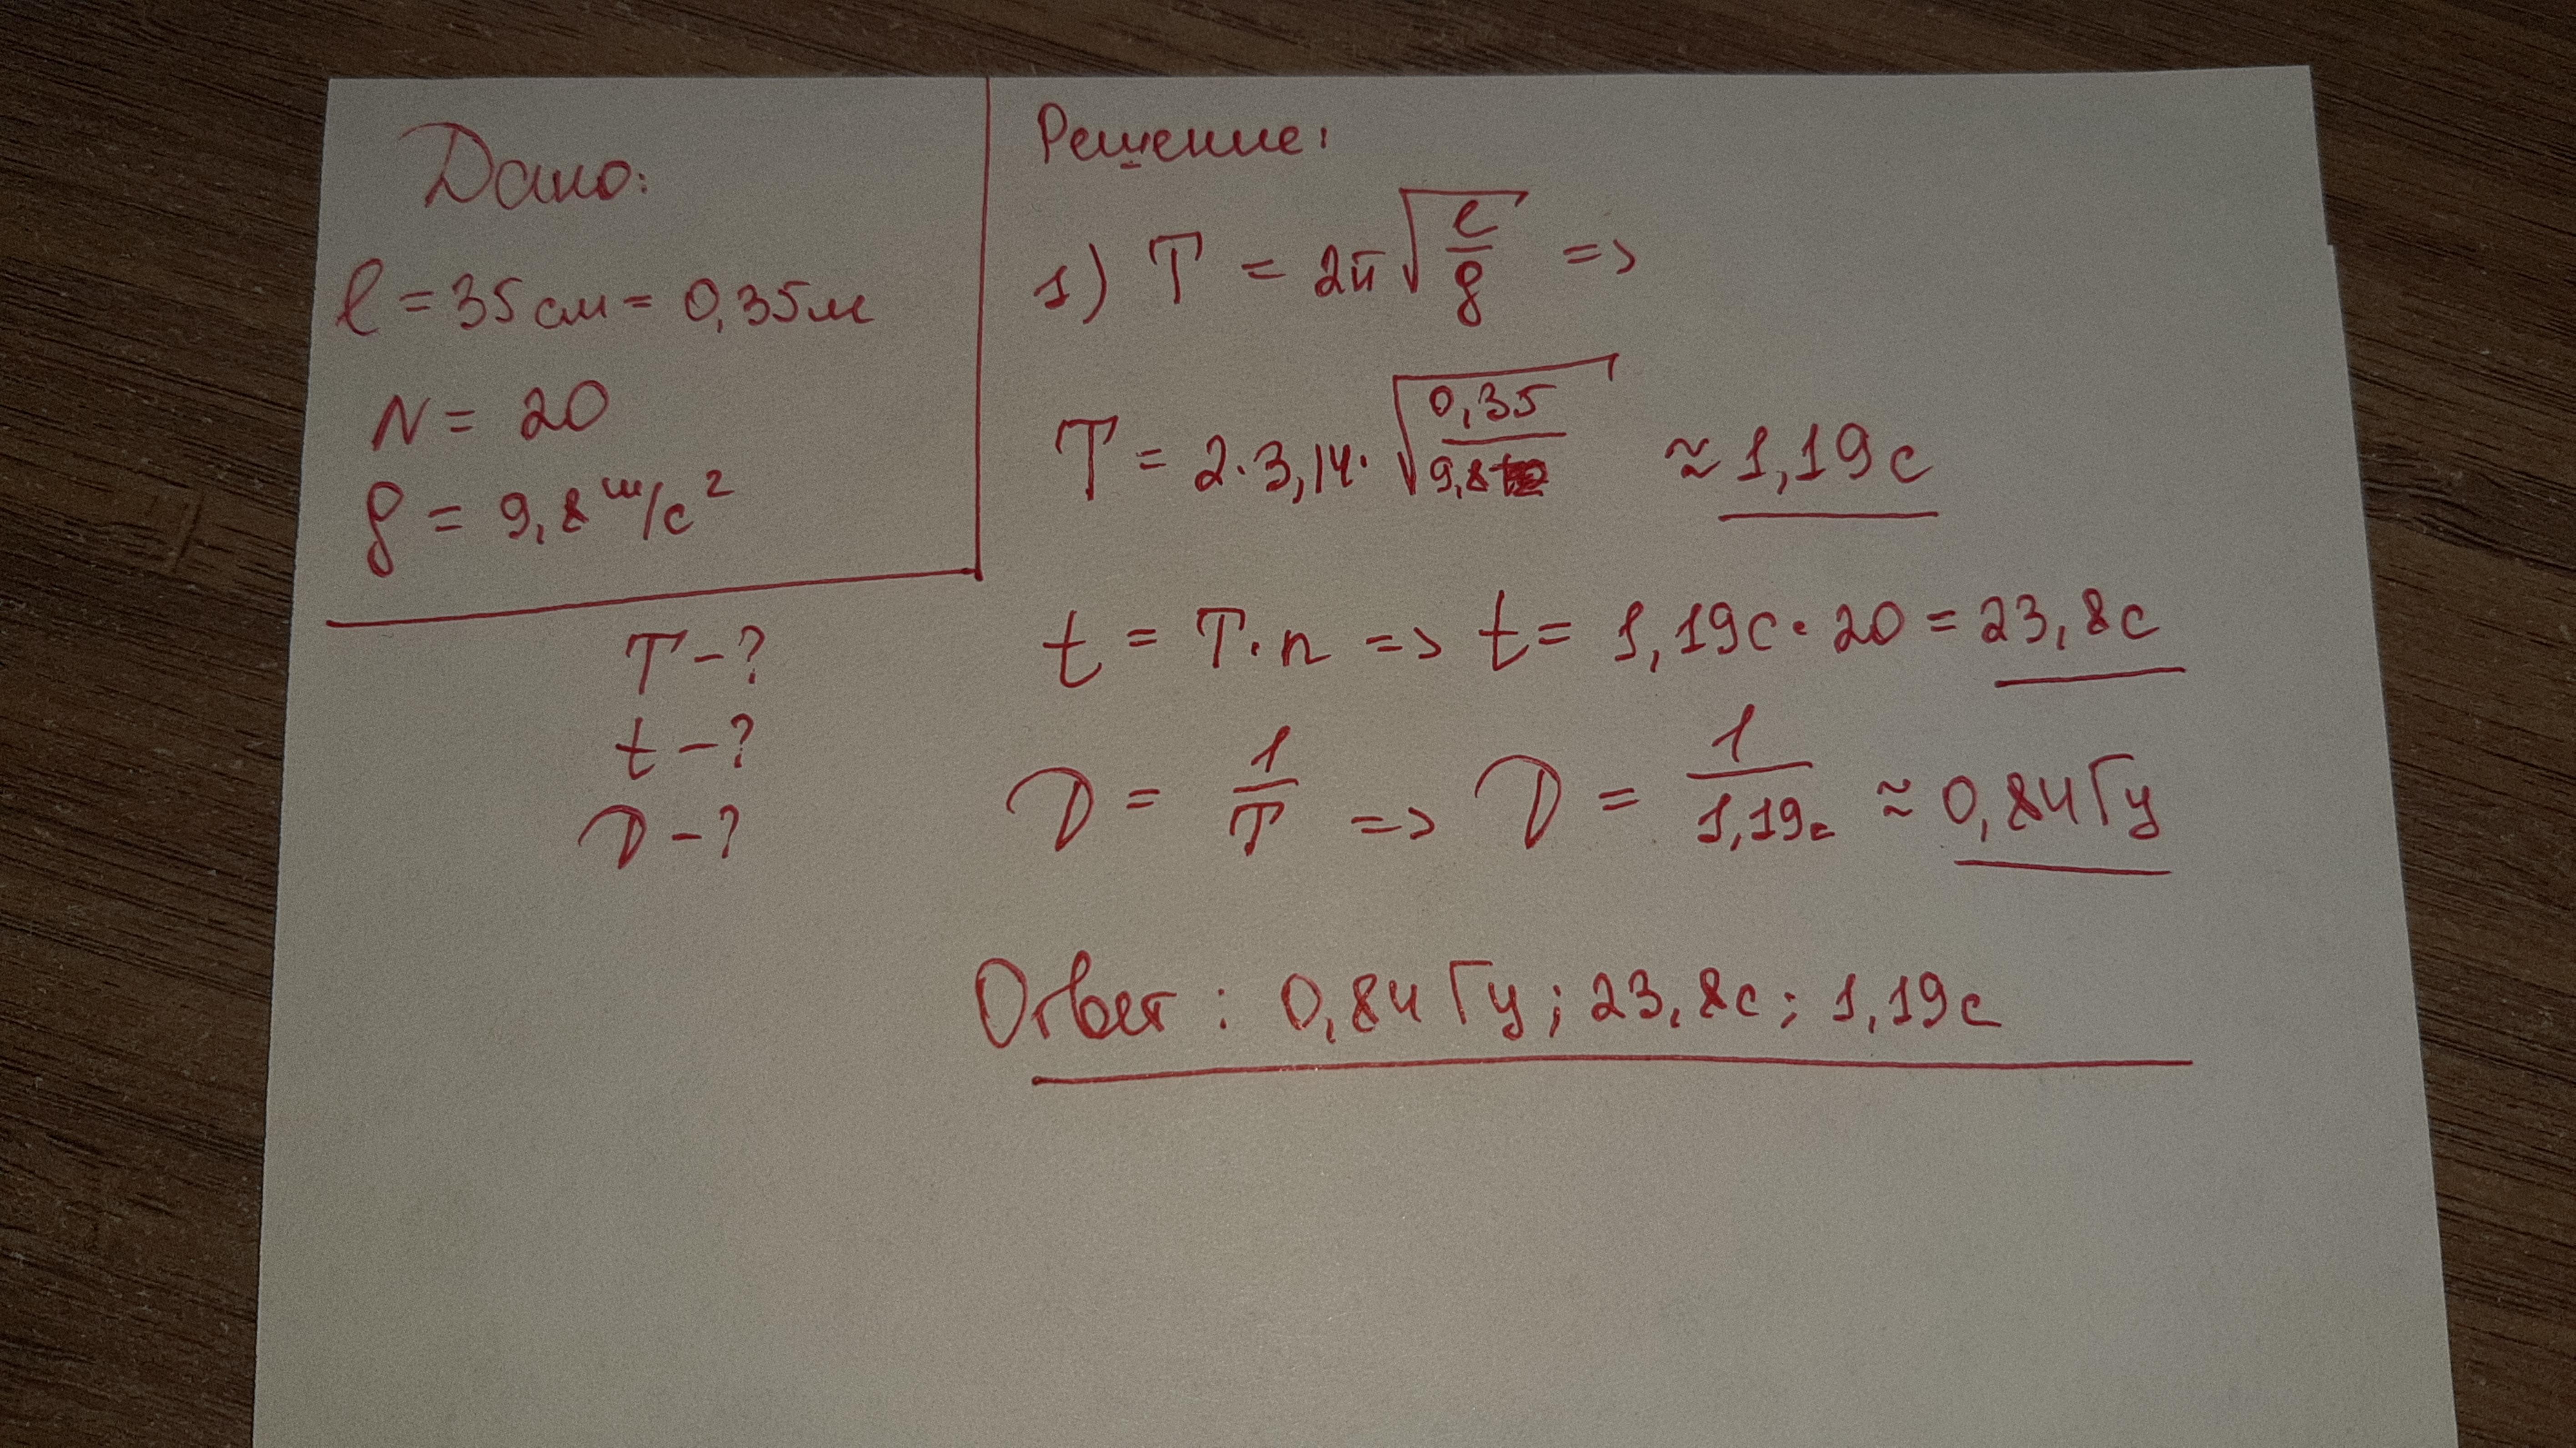 Дано:
l = 35 см = 0,35 м
N = 20
g = 9,8 м/с²
T - ?
t - ?
D - ?
Решение:
1) T = 2π √(l/g) =>
T = 2·3,14·√(0,35/9,8) ≈ 1,19 с
t = T·n => t = 1,19с·20 = 23,8с
D = 1/T => D = 1/1,19с ≈ 0,84 Гц
Ответ: 0,84 Гц; 23,8с; 1,19с